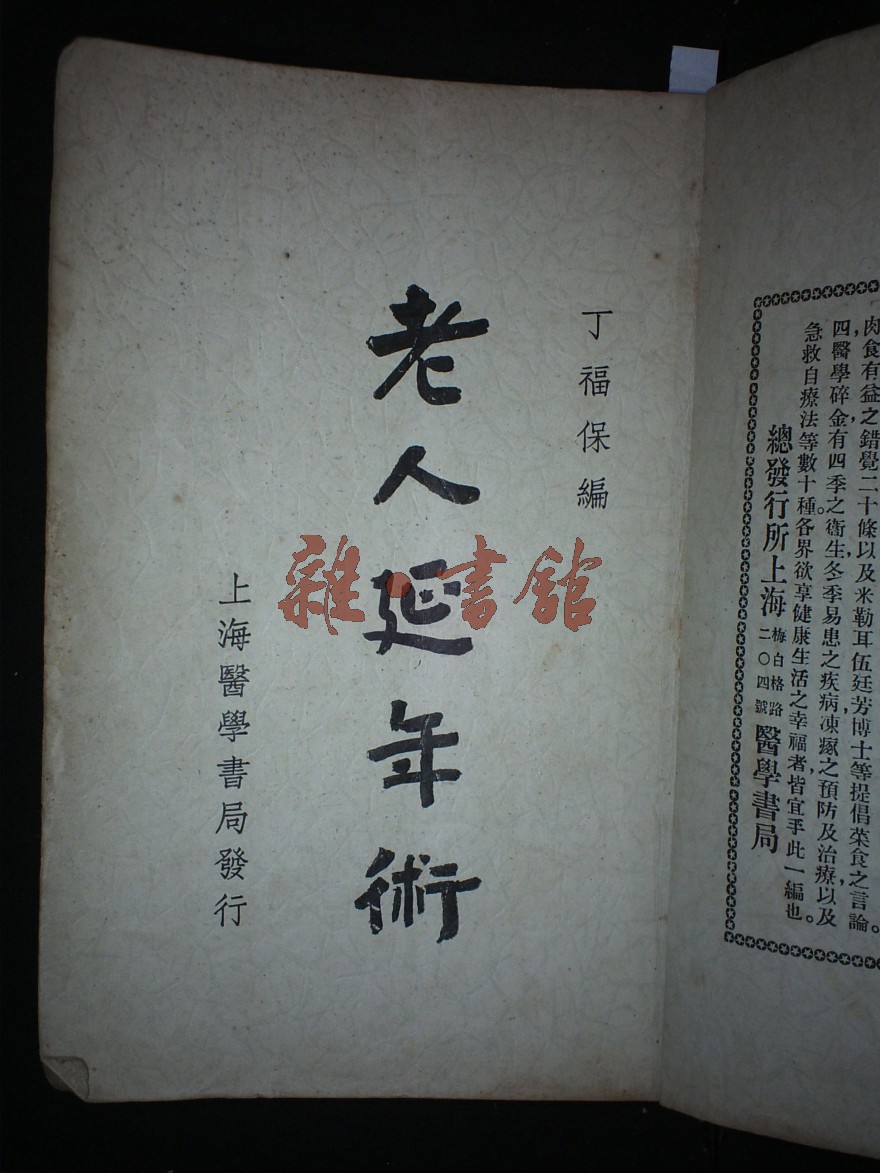 肉食有益之錯覺二十條以及米勒耳伍廷芳博士等提倡菜食之言論。
四醫學碎金有四季之衛生冬季易患之疾病,凍瘃之預防及治療,以及
急救自療法等數十種。各界欲享健康生活之幸福者,皆宜手此一編也。
總發行所上海梅白格路二〇四號醫學書局
丁福保編
老人延年術
上海醫學書局發行
雜·書館